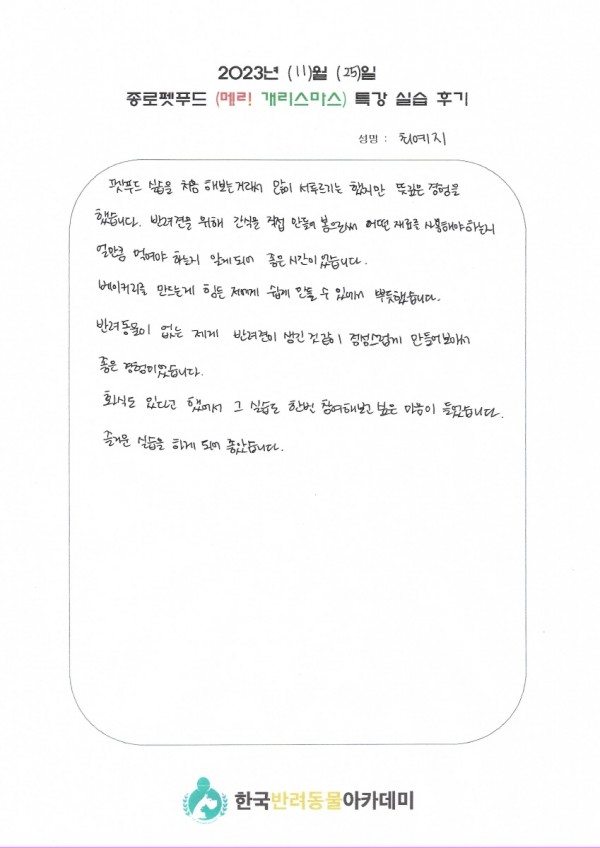 2023년 (11)월 (25)일
종로펫푸드 (메리! 개리스마스) 특강 실습 후기
성명 : 최예지
펫푸드 실습을 처음 해보는거라서 많이 서투르기는 했지만 뜻깊은 경험을
했습니다. 반려견을 위해 간식을 직접 만들어 봄으로써 어떤 재료를 사용해야하는지
얼만큼 먹여야 하는지 알게되어 좋은 시간이었습니다.
베이커리를 만드는게 힘든 저에게 쉽게 만들 수 있어서 뿌듯했습니다.
반려동물이 없는 제게 반려견이 생긴것같이 정성스럽게 만들어보아서
좋은 경험이었습니다.
화식도 있다고 했어서 그 실습도 한번 참여해보고 싶은 마음이 들었습니다.
즐거운 실습을 하게 되어 좋았습니다.
한국반려동물아카데미